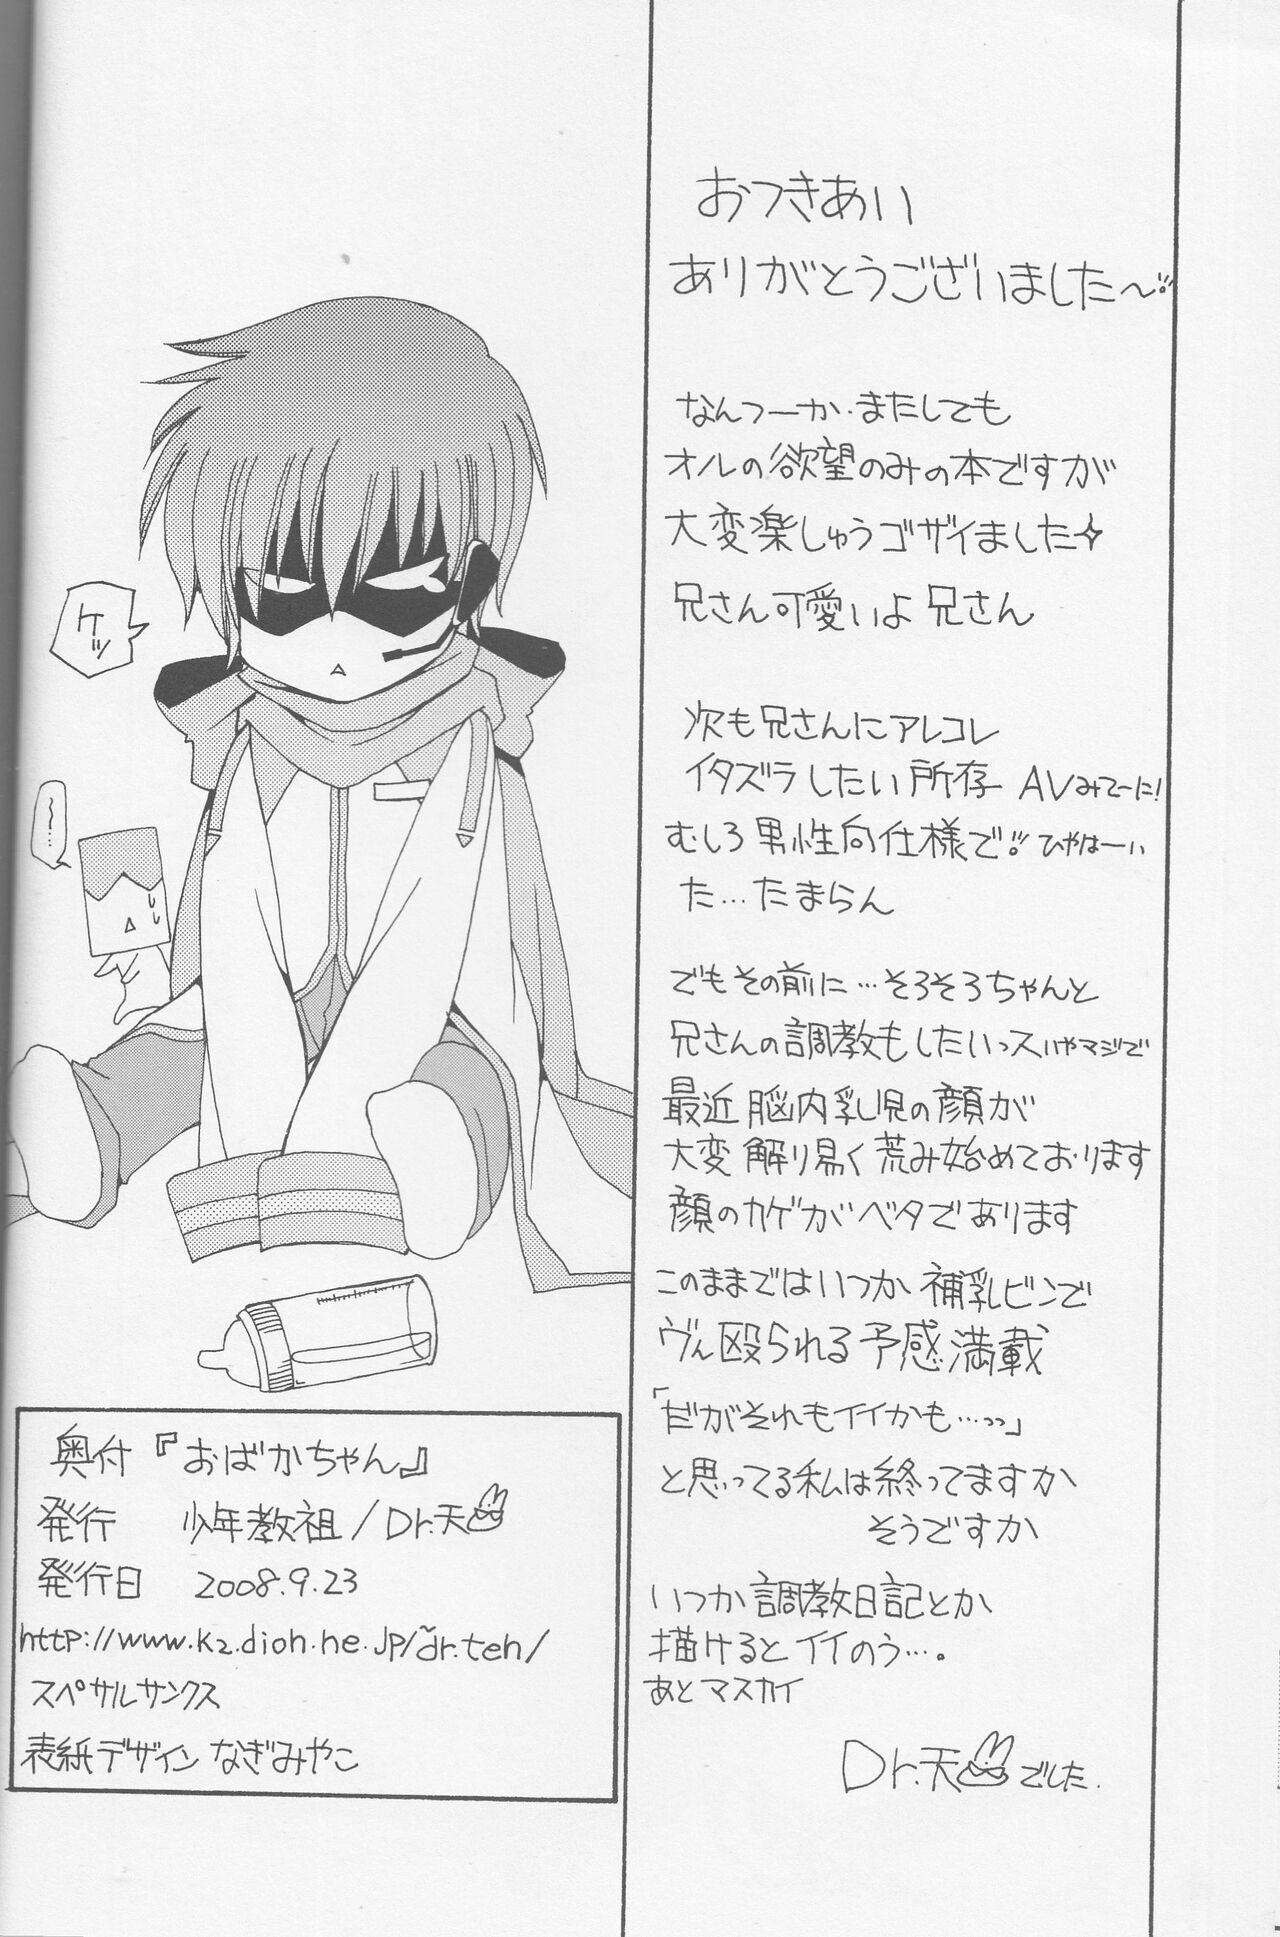 おつきあい
ありがとうございました～!!
なんつーか・またしても
オルの欲望のみの本ですが
大変楽しゅうゴザイました
兄さん可愛いよ兄さん
次も兄さんにアレコレ
イタズラしたい所存 AVみてーに!
むしろ男性向仕様で!! ひゃはーい
た…たまらん
でもその前に…そろそろちゃんと
兄さんの調教もしたいっスいやマジで
最近脳内乳児の顔が
大変解り易く荒み始めております
顔のカゲがベタであります
このままではいつか哺乳ビンで
ヴん殴られる予感満載
「だがそれもイイかも…っっ」
と思ってる私は終ってますか
そうですか
いつか調教日記とか
描けるとイイのう…。
あとマスカイ
Dr.天でした.
ケッ
〜…
奥付『おばかちゃん』
発行 少年教祖/Dr.天
発行日 2008.9.23
http://www.k2.dion.ne.jp/~dr.ten/
スペサルサンクス
表紙デザイン なぎみやこ